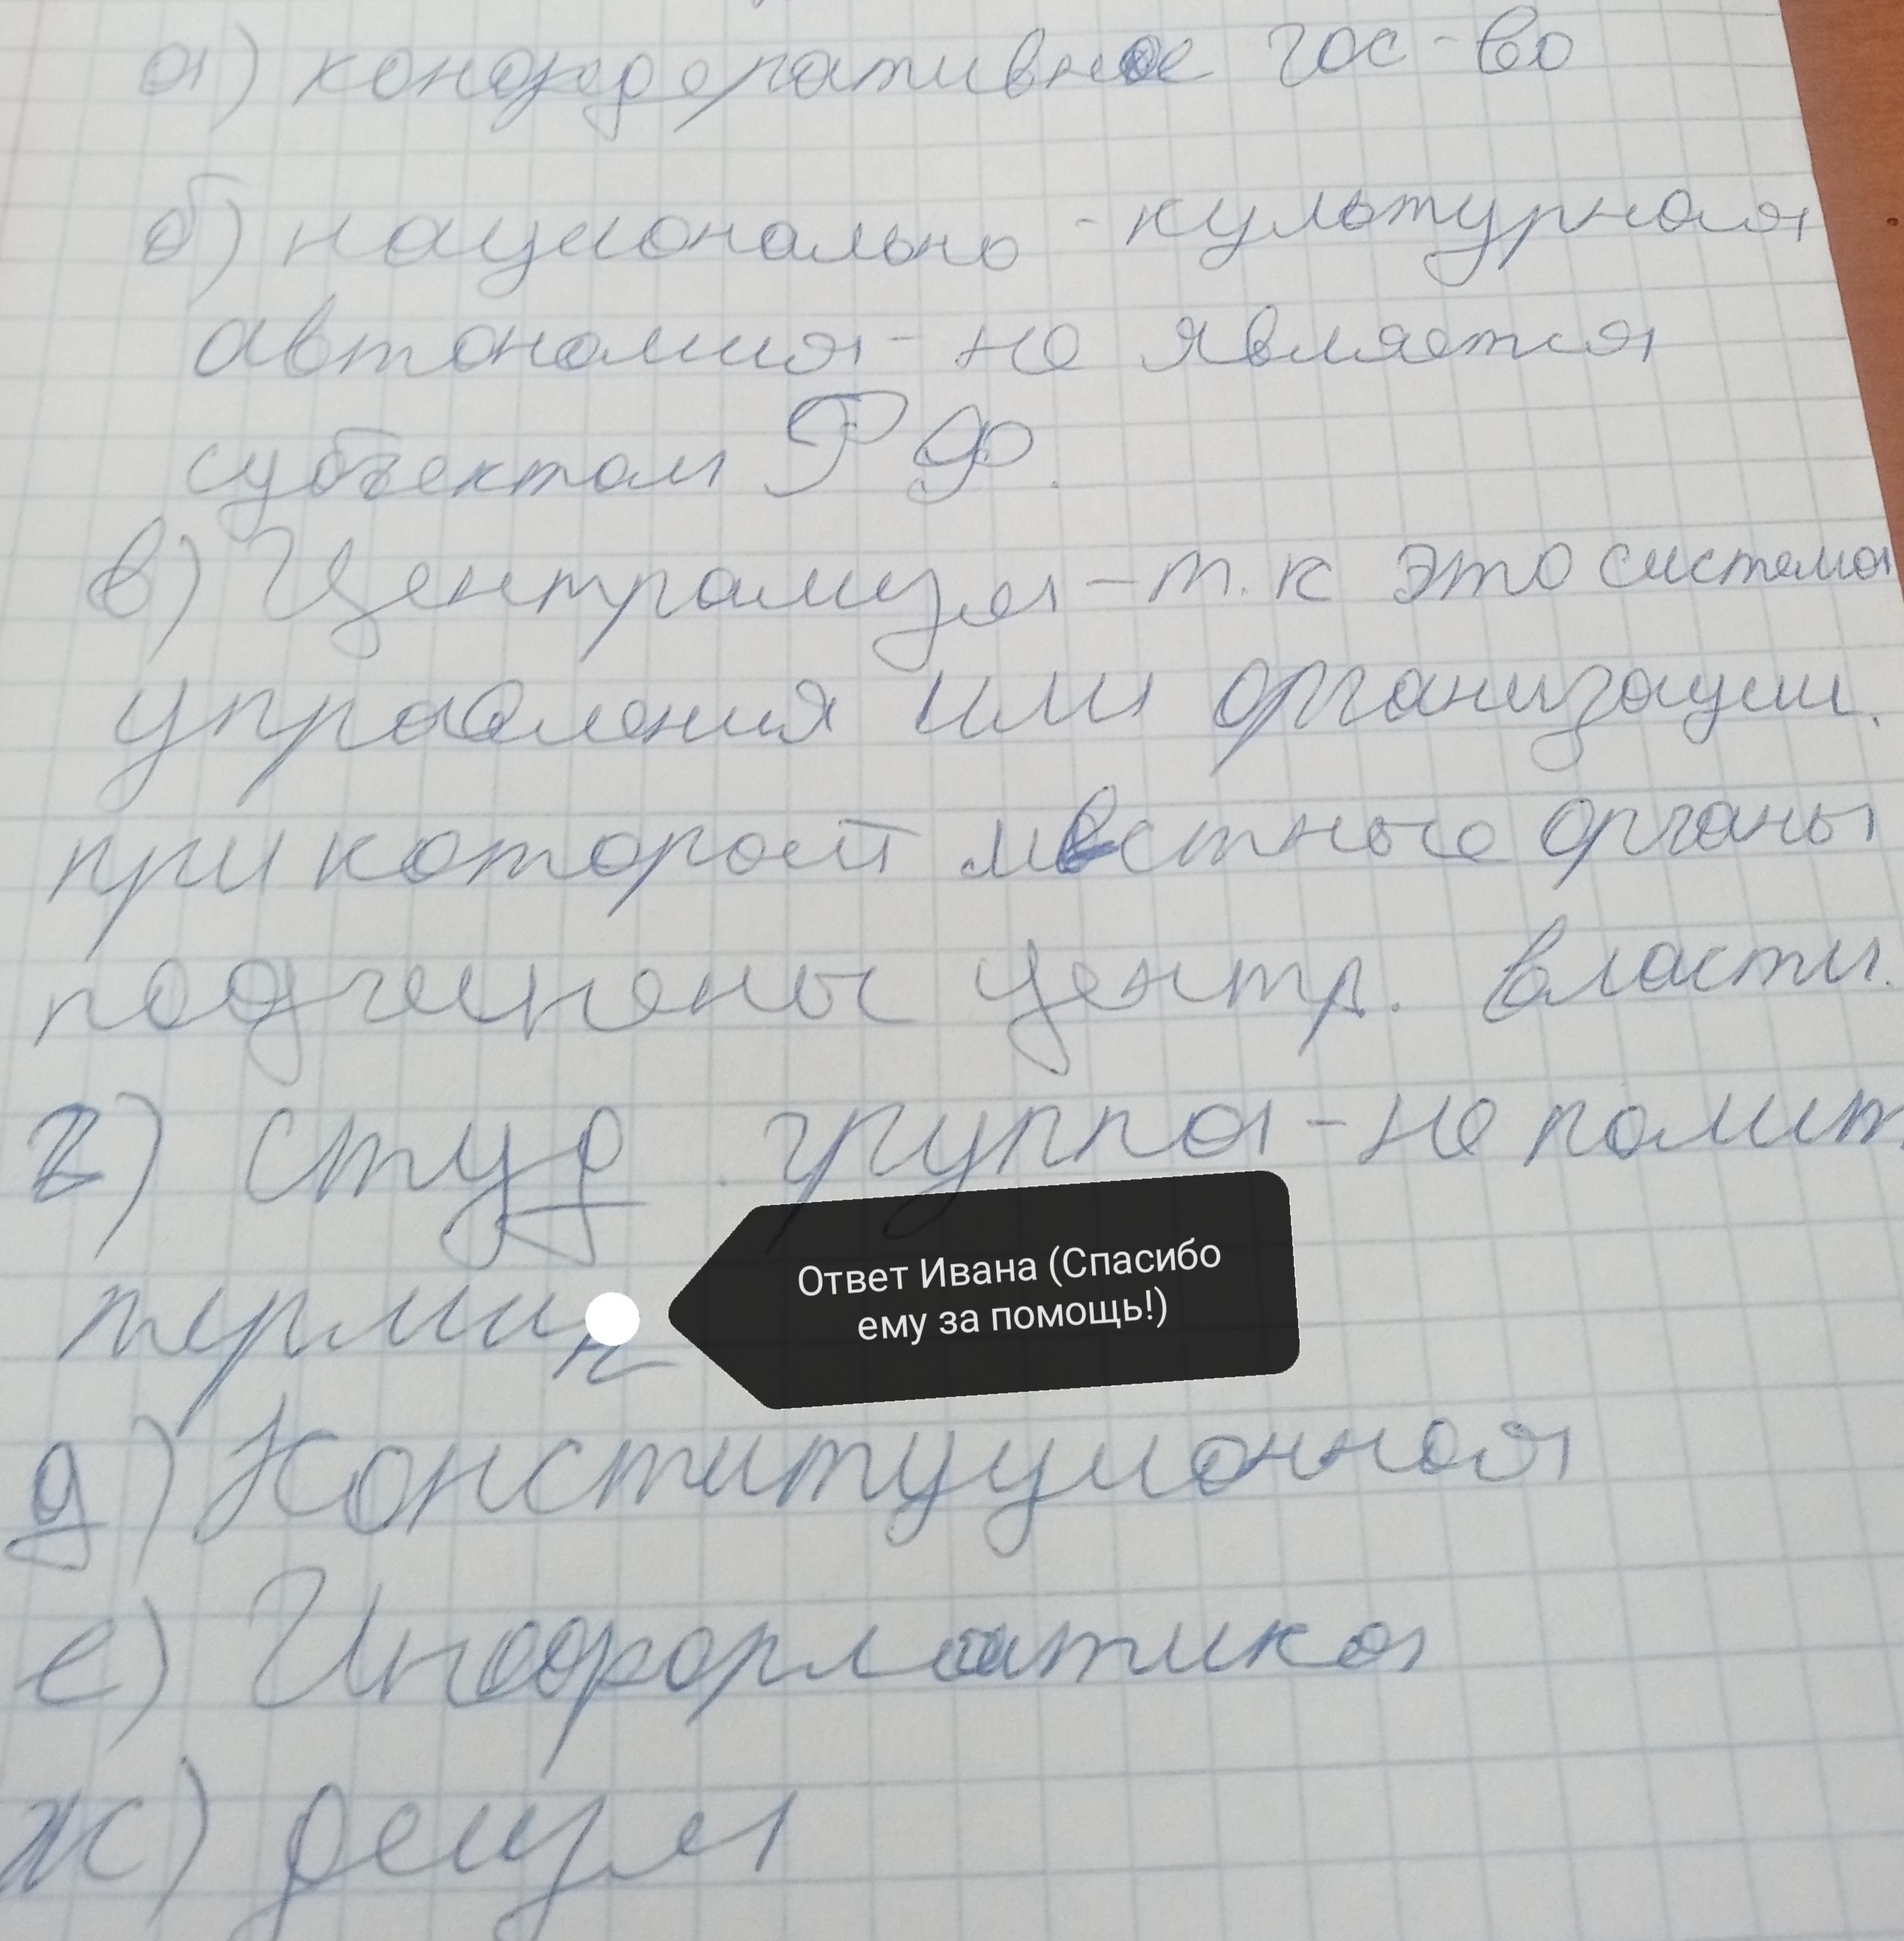 а) конфедеративное гос-во
б) национально-культурная
автономия - не является
субъектом РФ.
в) Централизм - т.к это система
управления или организации.
при которой местные органы
подчинены центр. власти.
г) студ. группа - не полит
термин
Ответ Ивана (Спасибо
ему за помощь!)
д) Конституционная
е) Информатика
ж) деизм